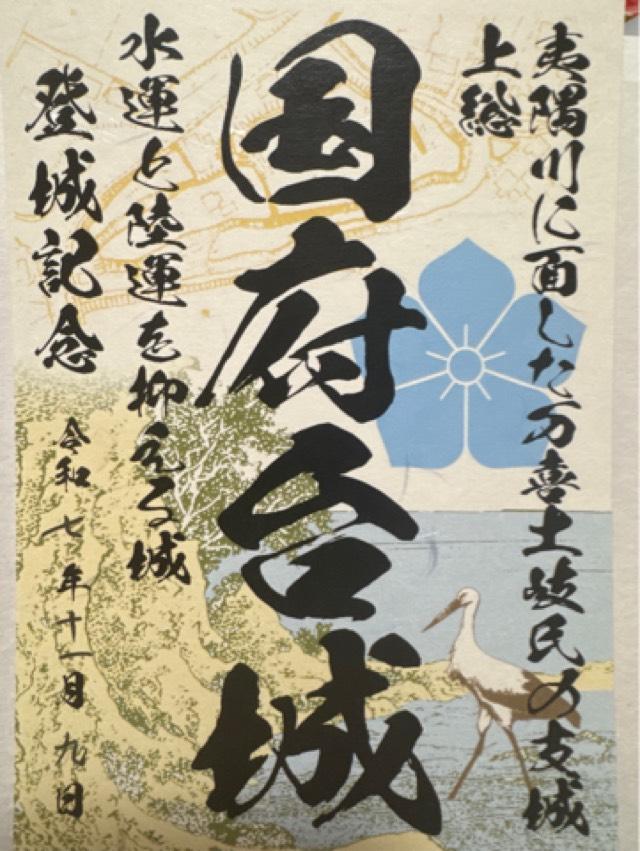 夷隅川に面した万喜土岐氏の支城
上総
国府台城
水運と陸運を抑える城
登城記念
令和七年十一月九日